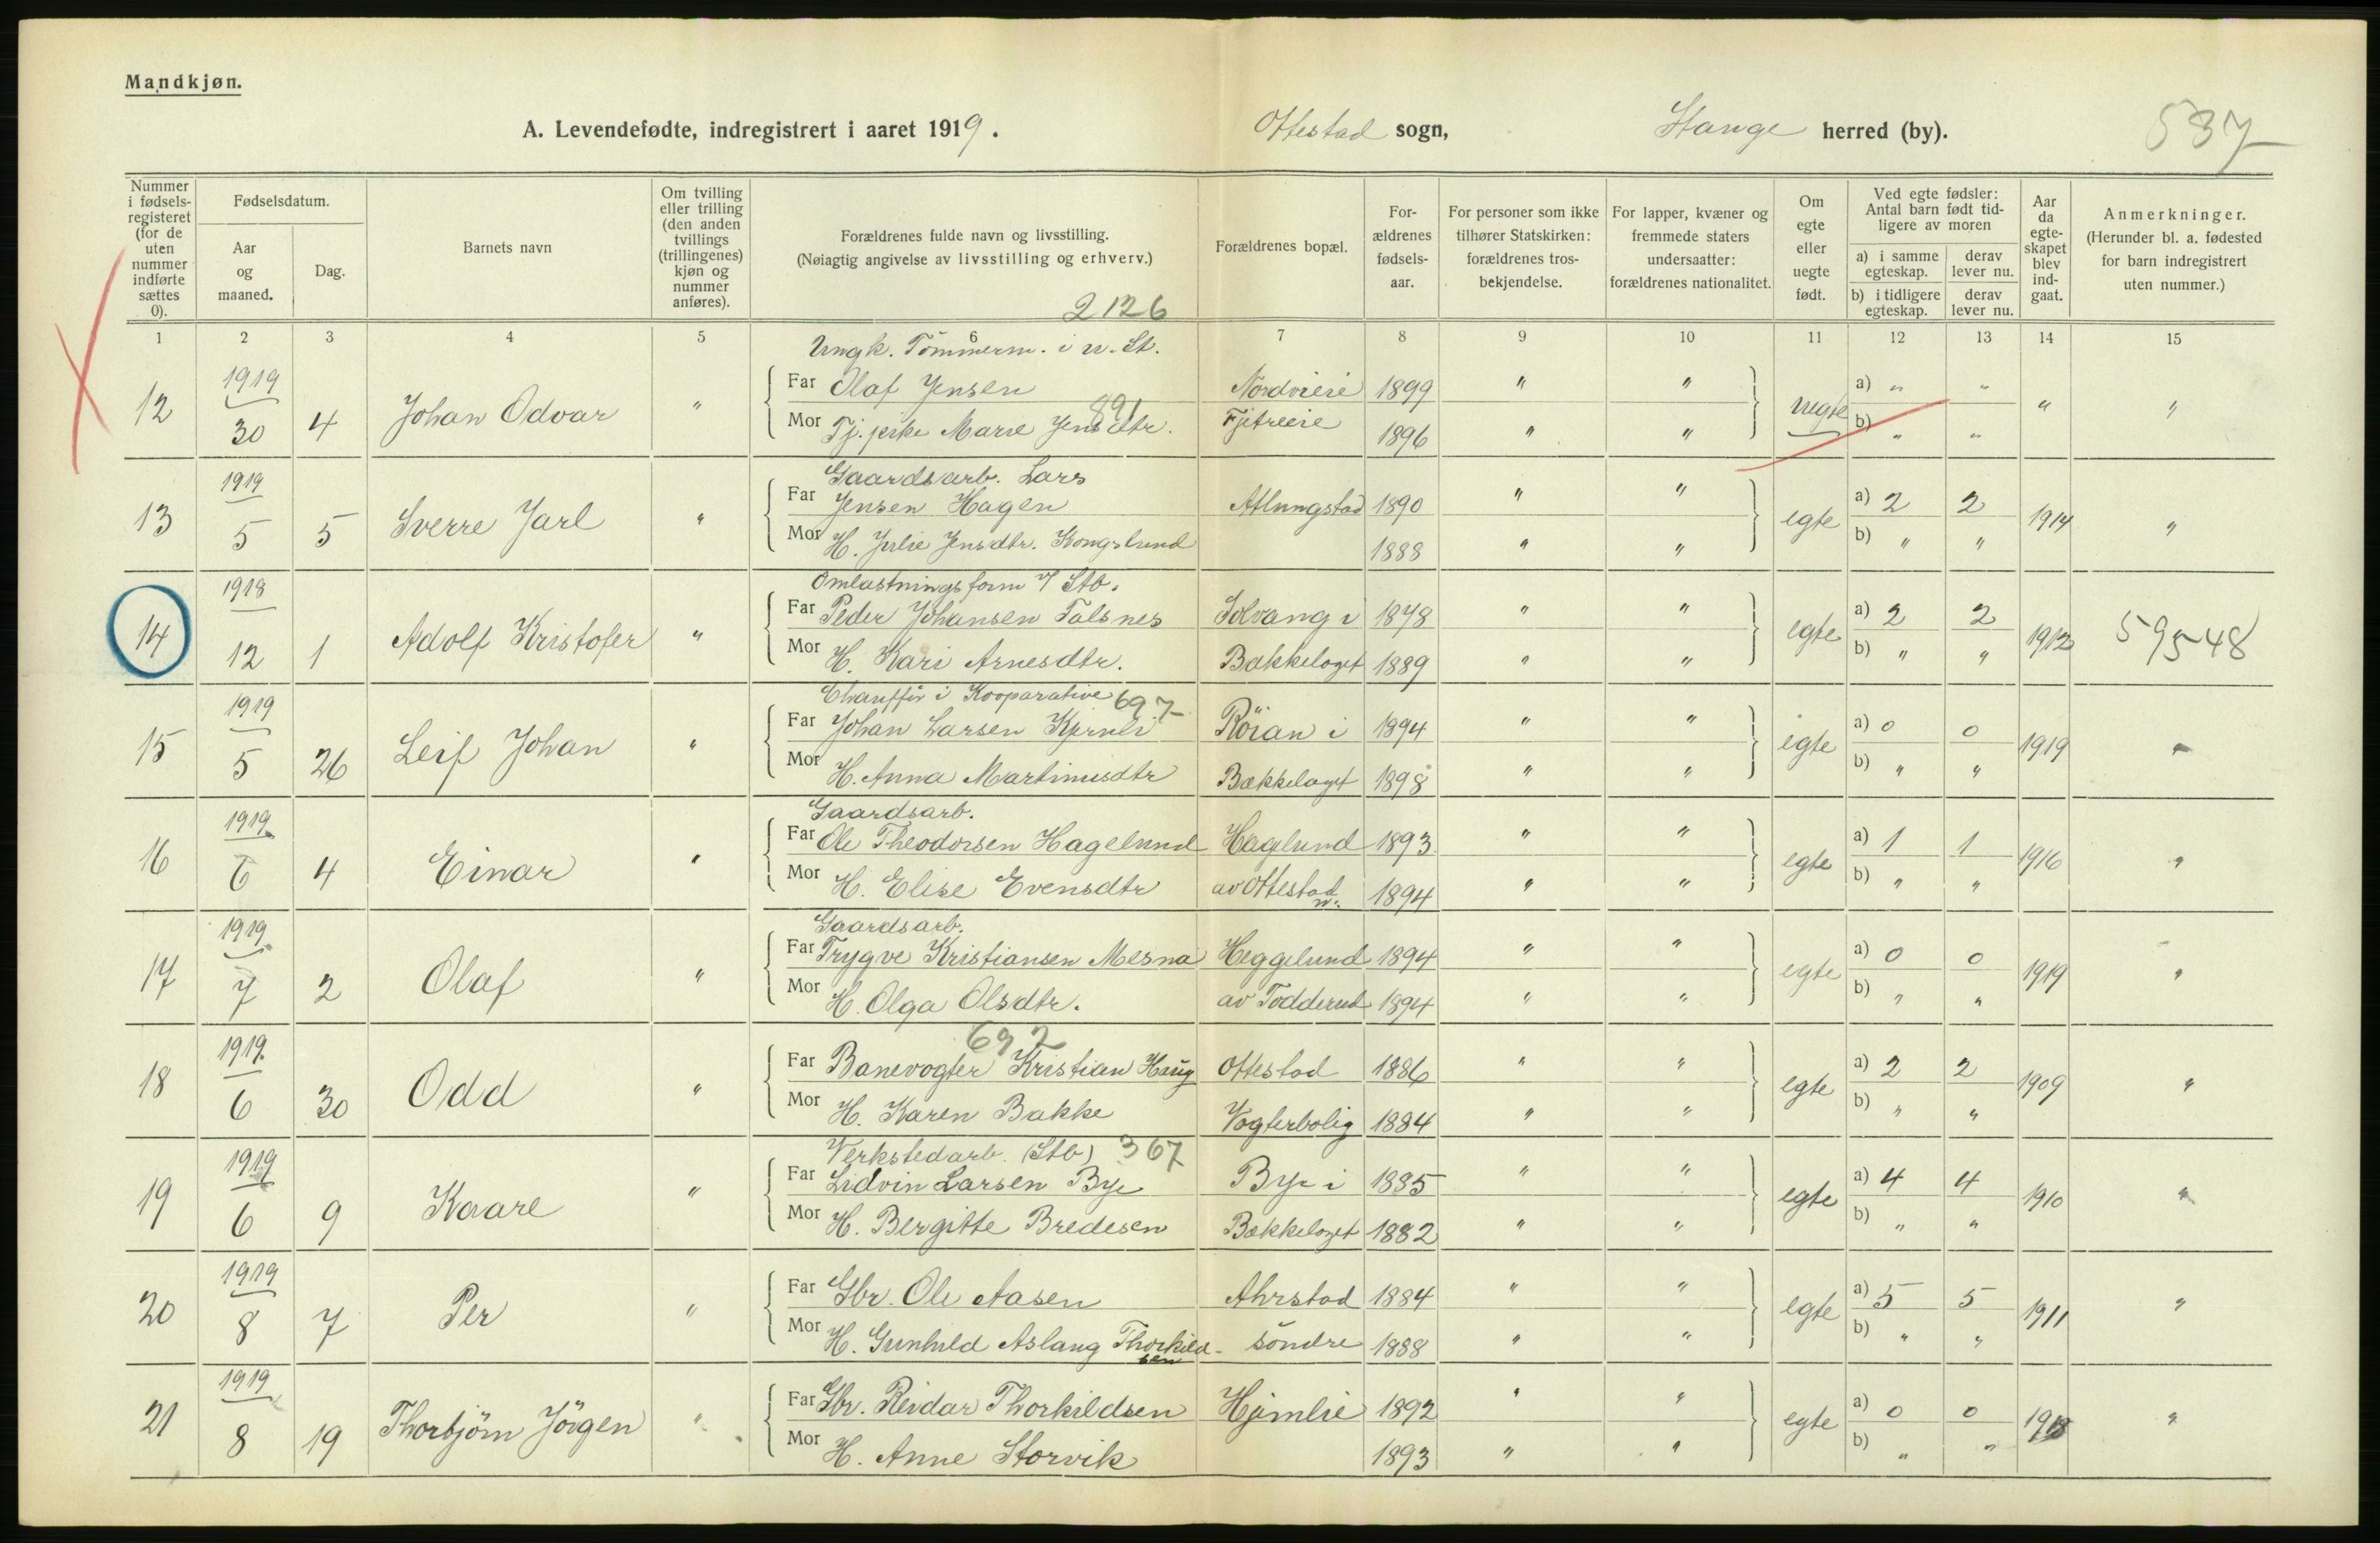 Mandkjøn.
A. Levendefødte, indregistrert i aaret 1919. Ottestad sogn, Stange herred (by). 537
Nummer i fødselsregisteret (for de uten nummer indførte sættes 0).
Fødselsdatum.
Aar og maaned.
Dag.
Barnets navn
Om tvilling eller trilling (den anden tvillings (trillingenes) kjøn og nummer anføres).
Forældrenes fulde navn og livsstilling.
(Nøiagtig angivelse av livsstilling og erhverv.)
2126
Forældrenes bopæl.
Forældrenes fødselsaar.
For personer som ikke tilhører Statskirken: forældrenes trosbekjendelse.
For lapper, kvæner og fremmede staters undersaatter: forældrenes nationalitet.
Om egte eller uegte født.
Ved egte fødsler: Antal barn født tidligere av moren
a) i samme egteskap. derav lever nu.
b) i tidligere egteskap. derav lever nu.
Aar da egteskapet blev indgaat.
Anmerkninger.
(Herunder bl. a. fødested for barn indregistrert uten nummer.)
1 2 3 4 5 6 7 8 9 10 11 12 13 14 15
Ungk. Tømmerm. i n. St.
12 1919 30 4 Johan Odvar " Far Olaf Jensen Nordvieie 1899 " " uegte a) " " " "
Mor Tj. pike Marie Jensdtr. 891 Fjetreeie 1896 " " b) " "
Gaardsarb. Lars
13 1919 5 5 Sverre Jarl " Far Jensen Hagen Atlungstad 1890 " " egte a) 2 2 1914 "
Mor H. Julie Jensdtr. Kongslund 1888 " " b) " "
Omlastningsform v/ Stb.
14 1918 12 1 Adolf Kristofer " Far Peder Johansen Falsnes Solvang i 1878 " " egte a) 2 2 1912 59548
Mor H. Kari Arnesdtr. Bakkelaget 1889 " " b) " "
Chauffør i Kooparative 697
15 1919 5 26 Leif Johan " Far Johan Larsen Kjernli Röian i 1894 " " egte a) 0 0 1919 "
Mor H. Anna Martinusdtr Bækkelaget 1898 " " b) " "
Gaardsarb.
16 1919 6 4 Einar " Far Ole Theodorsen Hagelund Haglund 1893 " " egte a) 1 1 1916 "
Mor H. Elise Evensdtr av Ottestad n. 1894 " " b) " "
Gaardsarb.
17 1919 7 2 Olaf " Far Trygve Kristiansen Mesna Heggelund 1894 " " egte a) 0 0 1919 "
Mor H. Olga Olsdtr. av Todderud 1894 " " b) " "
692
18 1919 6 30 Odd " Far Banevogter Kristian Haug Ottestad 1886 " " egte a) 2 2 1909 "
Mor H. Karen Bakke Vogterbolig 1884 " " b) " "
Verkstedarb. (Stb) 367
19 1919 6 9 Kaare " Far Lidvin Larsen Bye Bye i 1885 " " egte a) 4 4 1910 "
Mor H. Bergitte Bredesen Bækkelaget 1882 " " b) " "
20 1919 8 7 Per " Far Gbr. Ole Aasen Ahrstad 1884 " " egte a) 5 5 1911 "
Mor H. Gunhild Aslaug Thorkildsen söndre 1888 " " b) " "
21 1919 8 19 Thorbjörn Jörgen " Far Gbr. Reidar Thorkildsen Hjemlie 1892 " " egte a) 0 0 1918 "
Mor H. Anne Storvik 1893 " " b) " "